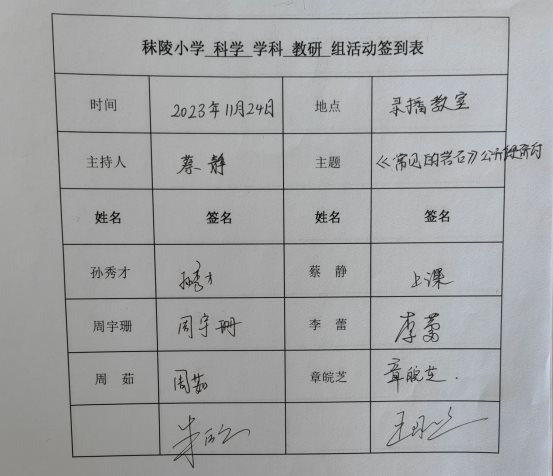 秣陵小学 科学 学科 教研 组活动签到表
时间 2023年11月24日 地点 录播教室
主持人 蔡静 主题 《常见的岩石》公开课研讨
姓名 签名 姓名 签名
孙秀才 孙秀才 蔡 静 上课
周宇珊 周宇珊 李 蕾 李蕾
周 茹 周茹 章皖芝 章皖芝.